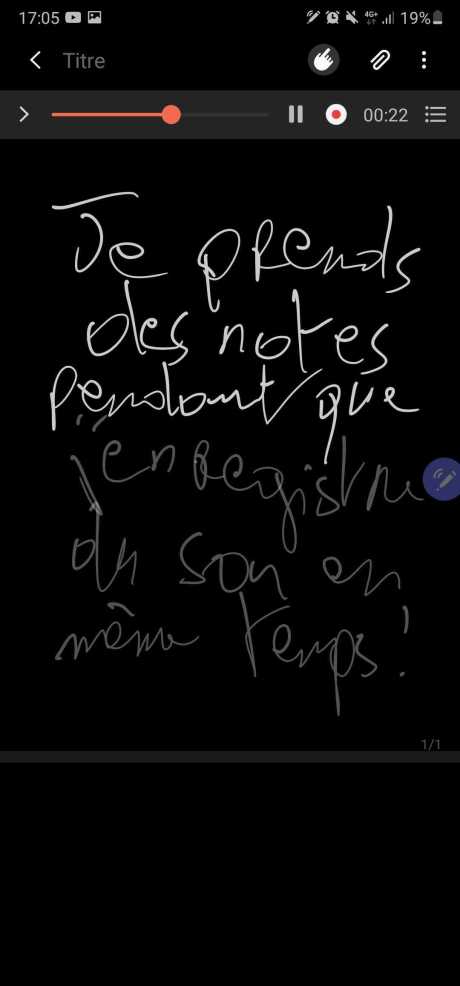 17:05 4G+ 19%
Titre
00:22
Je prends
des notes
pendant que
j'enregistre
du son en
même temps!
1/1